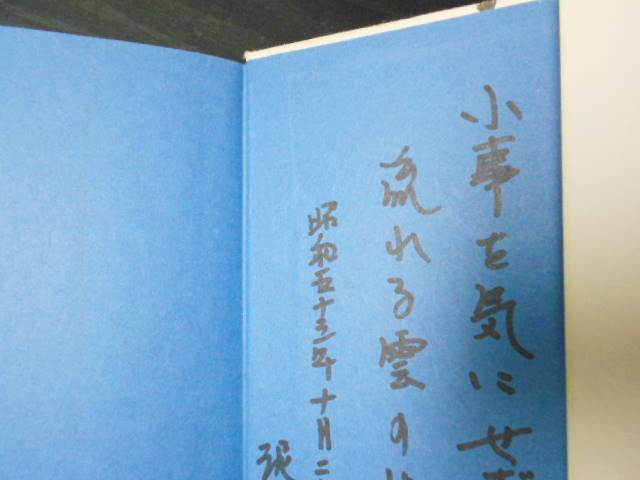 小事を気にせず
流れる雲の
昭和五十三年十月二
張